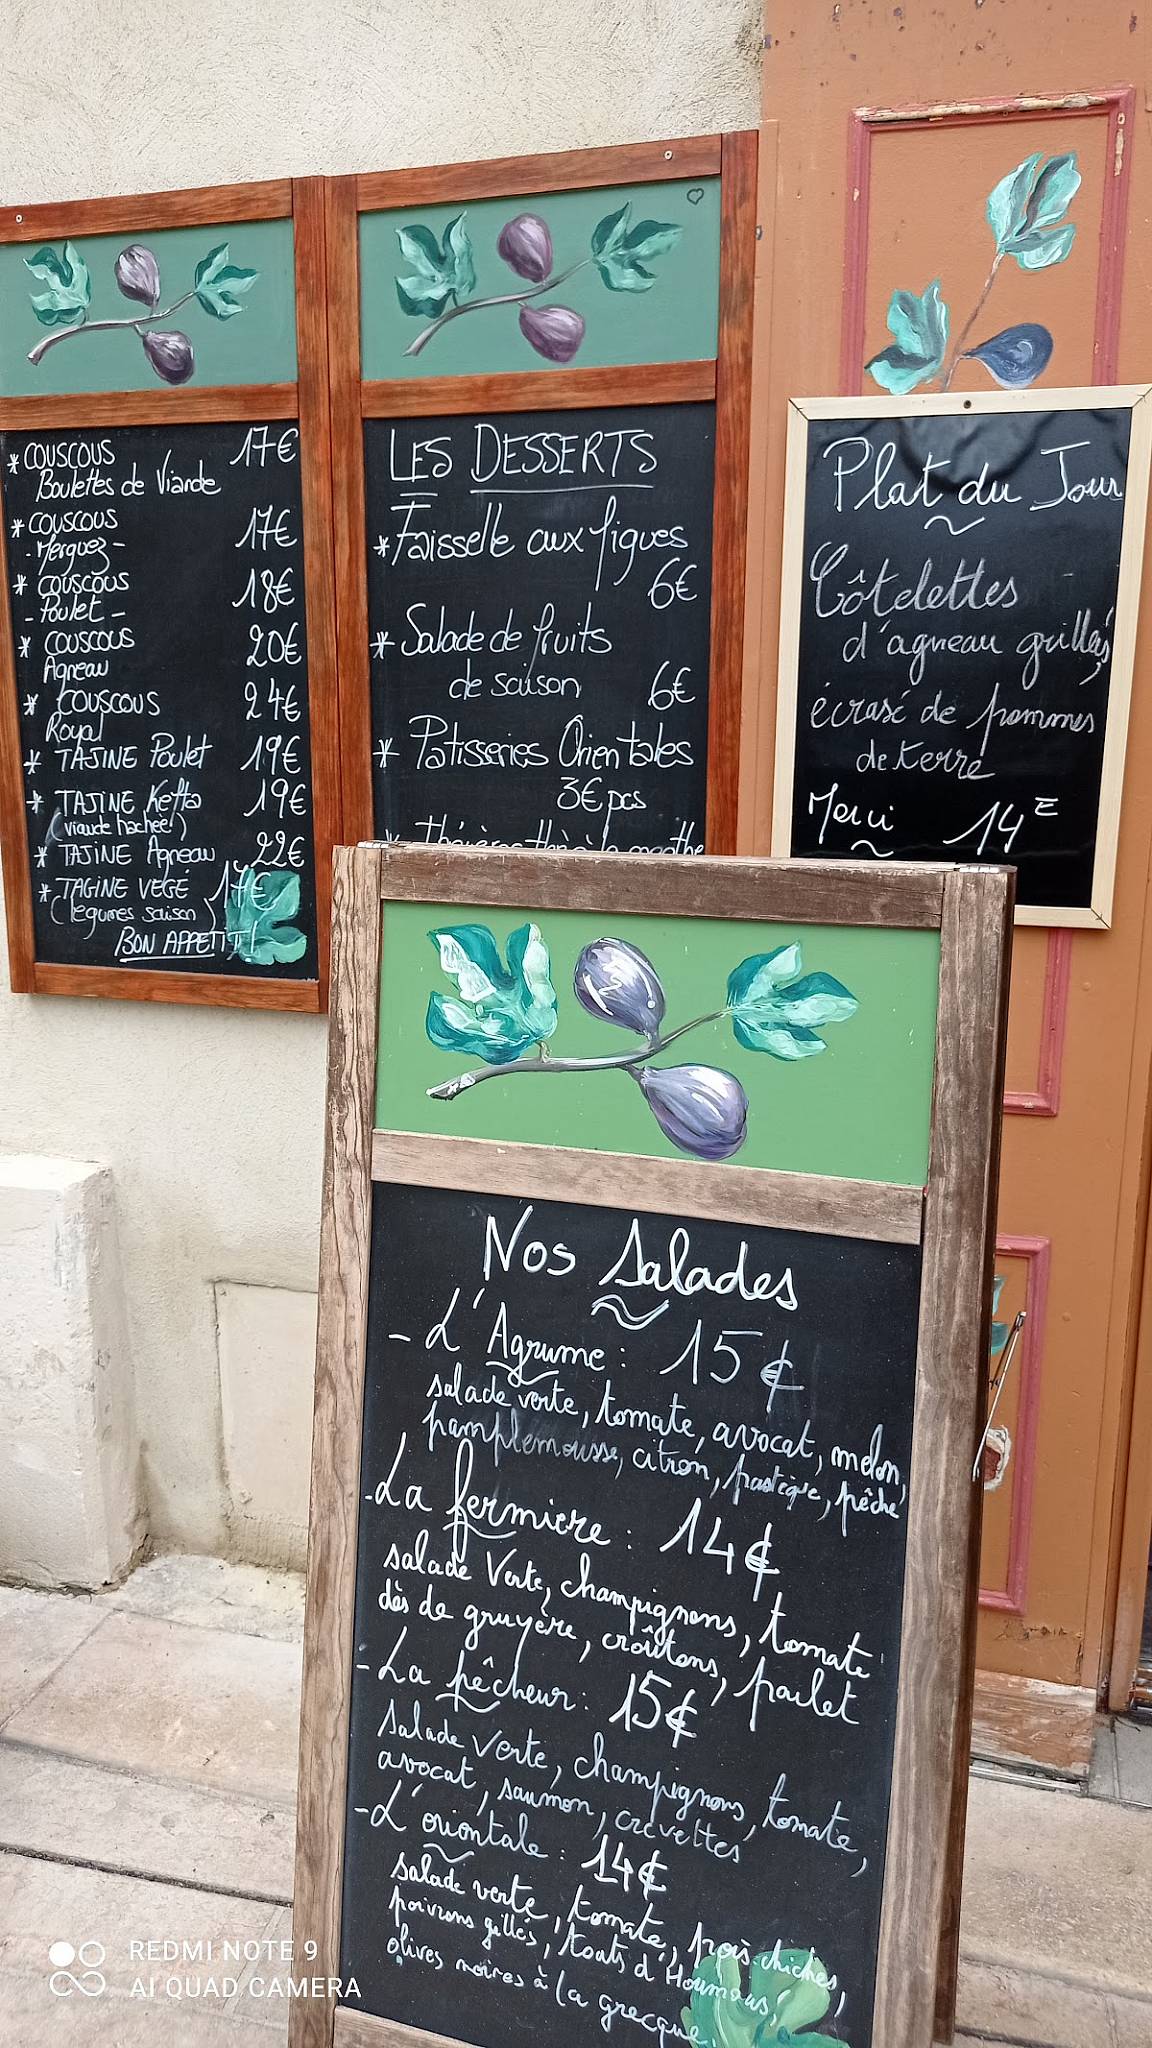 * COUSCOUS 17€
Boulettes de Viande
* COUSCOUS 17€
- Merguez -
* COUSCOUS 18€
- Poulet -
* COUSCOUS 20€
Agneau
* COUSCOUS 24€
Royal
* TAJINE Poulet 19€
* TAJINE Kefta 19€
(viande hachée)
* TAJINE Agneau 22€
* TAGINE VEGE 17€
(legumes saison)
BON APPETIT!
LES DESSERTS
* Faisselle aux figues
6€
* Salade de fruits
de saison 6€
* Patisseries Orientales
3€ pcs
* théière thé à la menthe
Plat du Jour
Côtelettes
d'agneau grillés,
écrasé de pommes
de terre
Merci 14€
Nos Salades
- L'Agrume : 15€
salade verte, tomate, avocat, melon,
pamplemousse, citron, pastèque, pêche
- La fermiere : 14€
salade Verte, champignons, tomate
dès de gruyère, croûtons, poulet
- La pêcheur : 15€
salade verte, champignons, tomate,
avocat, saumon, crevettes
- L'orientale : 14€
salade verte, tomate, pois-chiches,
poivrons gillés, toats d'Houmous,
olives noires à la grecque.
REDMI NOTE 9
AI QUAD CAMERA